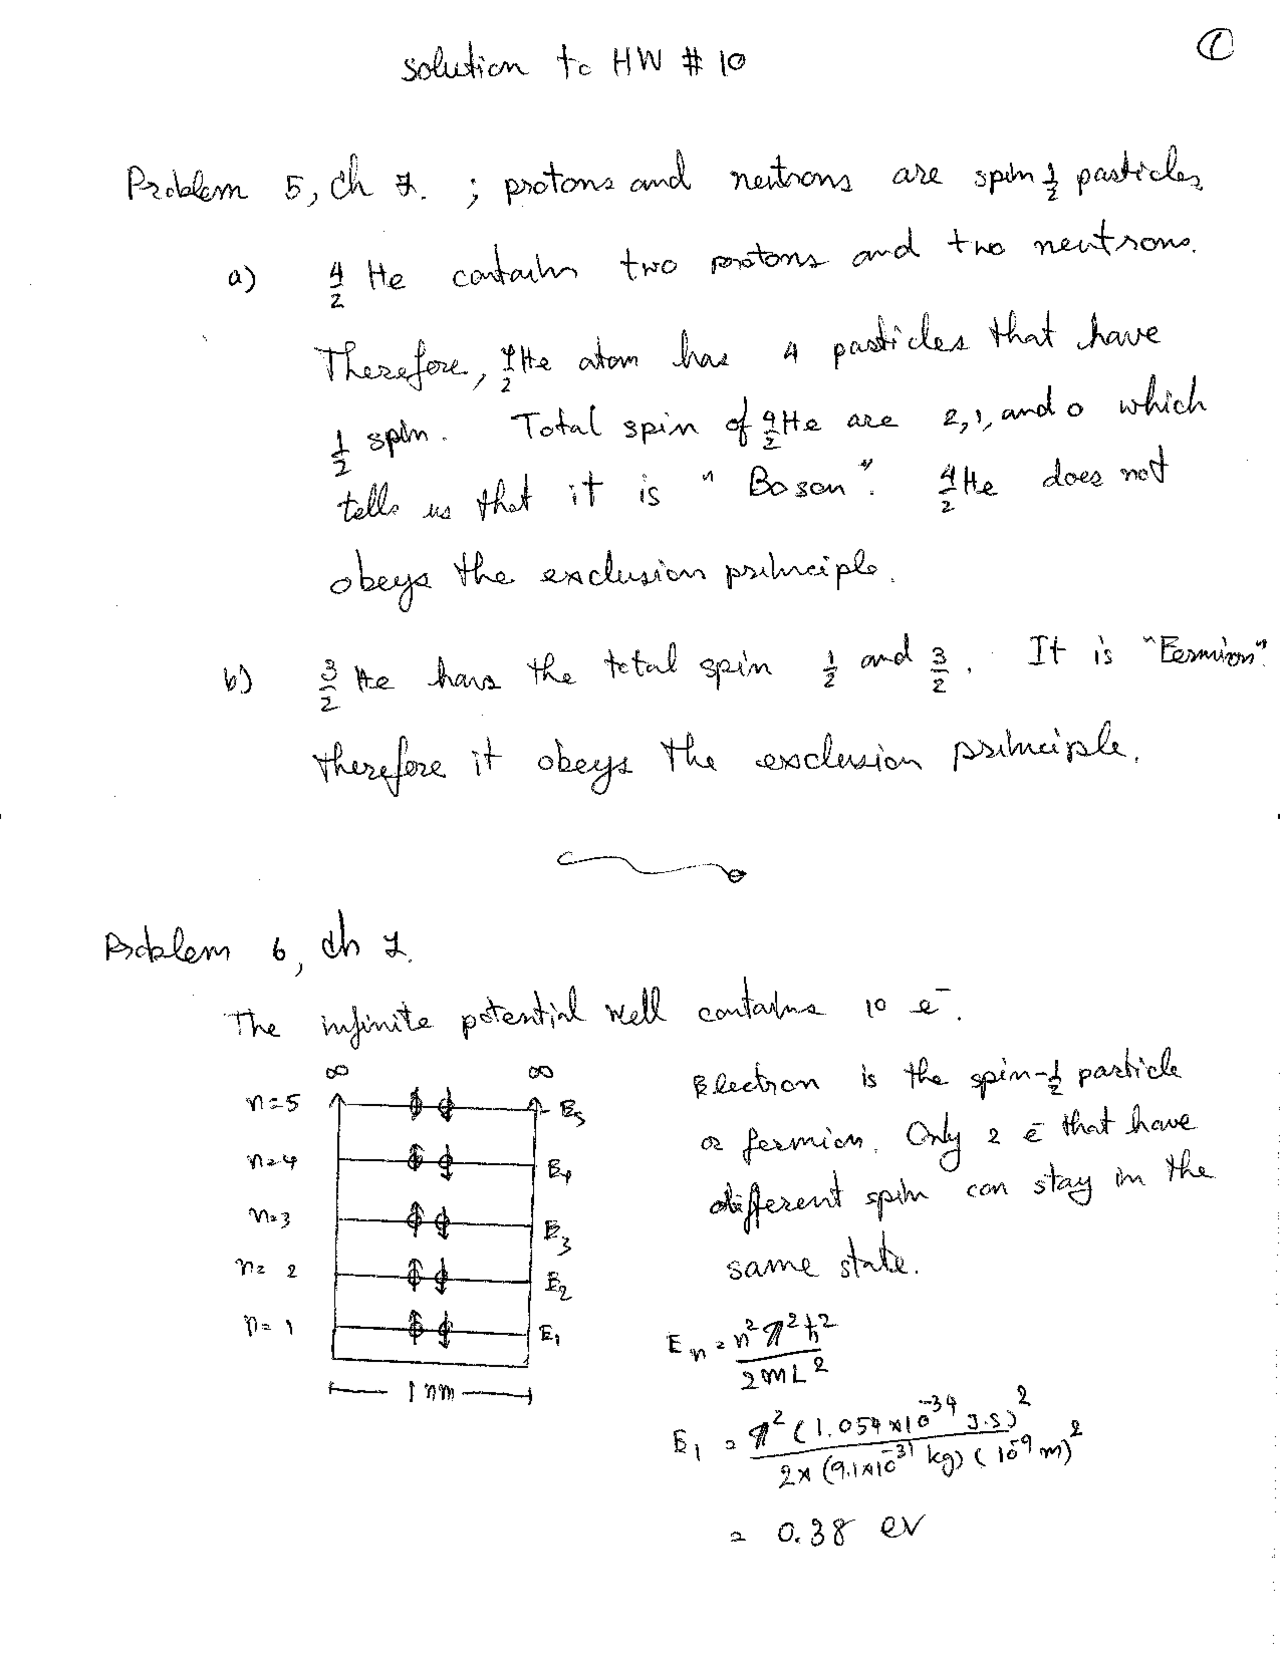 ①
solution to HW # 10
Problem 5, ch 7. ; protons and neutrons are spin ½ particles
a) ⁴₂He contains two protons and two neutrons.
Therefore, ⁴₂He atom has 4 particles that have
½ spin. Total spin of ⁴₂He are 2,1, and 0 which
tells us that it is "Boson". ⁴₂He does not
obeys the exclusion principle.
b) ³₂He has the total spin ½ and 3/2. It is "Fermion"
therefore it obeys the exclusion principle.
Problem 6, ch 7.
The infinite potential well contains 10 e⁻.
∞ ∞
n=5 E₅
n=4 E₄
n=3 E₃
n=2 E₂
n=1 E₁
1 nm
Electron is the spin-½ particle
or fermion. Only 2 e⁻ that have
different spin can stay in the
same state.
Eₙ = n²π²ħ² / 2mL²
E₁ = π² (1.054×10⁻³⁴ J.S)² / 2× (9.1×10⁻³¹ kg) (10⁻⁹ m)²
= 0.38 eV